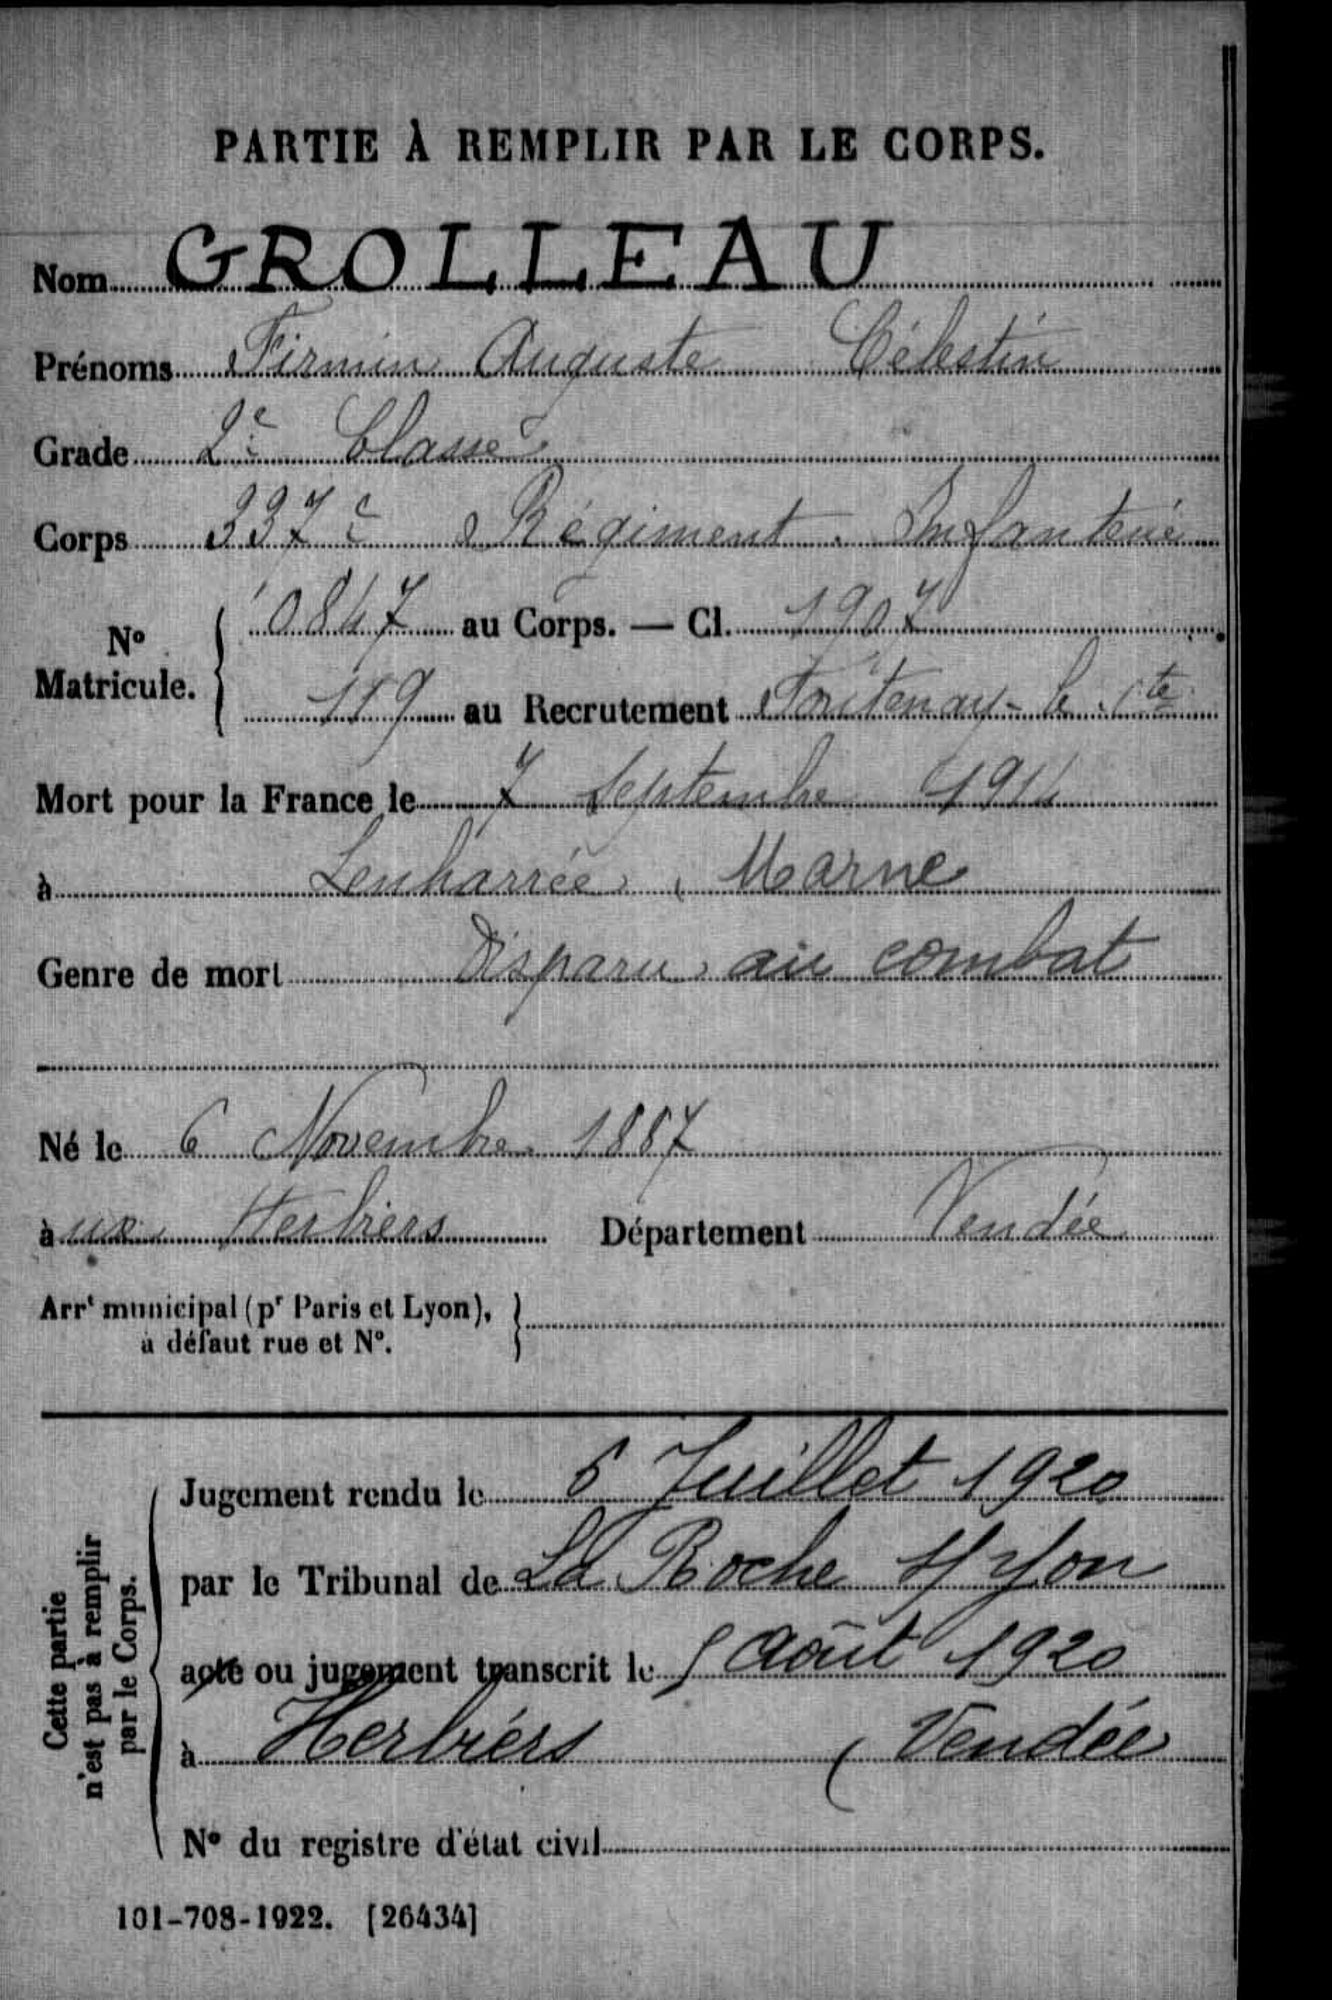 PARTIE À REMPLIR PAR LE CORPS.
Nom GROLLEAU
Prénoms Firmin Auguste Célestin
Grade 2e Classe
Corps 337e Régiment Infanterie
N° Matricule. { 0847 au Corps. — Cl. 1907
119 au Recrutement Fontenay-le-Cte
Mort pour la France le 7 Septembre 1914
à Lenharrée, Marne
Genre de mort Disparu au combat
Né le 6 Novembre 1887
à ux Herbiers Département Vendée
Arrt municipal (pr Paris et Lyon),
à défaut rue et N°. }
Cette partie
n'est pas à remplir
par le Corps.
Jugement rendu le 6 Juillet 1920
par le Tribunal de La Roche s/ Yon
acte ou jugement transcrit le 5 Août 1920
à Herbiers (Vendée
N° du registre d'état civil
101-708-1922. [26434]